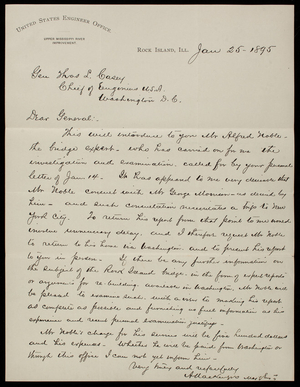 UNITED STATES ENGINEER OFFICE,
UPPER MISSISSIPPI RIVER
IMPROVEMENT.
ROCK ISLAND, ILL. Jan 25- 1895
Gen Thos L. Casey
Chief of Engineers U.S.A.
Washington D.C.
Dear General:
This will introduce to you Mr Alfred Noble
the bridge expert, who has carried on for me the
investigation and examination, called for by your personal
letter of Jan 14. It has appeared to me very desirable that
Mr Noble consult with Mr George Morison as desired by
him and such consultation necessitates a trip to New
York City. To return his report from that point to me would
involve unnecessary delay, and I therefore request Mr Noble
to return to his home via Washington and to present his report
to you in person. If there be any further information on
the subject of the Rock Island bridge in the form of expert reports
or opinions for re-building accessible in Washington, Mr Noble will
be pleased to examine such with a view to making his report
as complete as possible and furnishing as full information as his
experience and sound personal knowledge
Mr Noble's charge for his service will be five hundred dollars
and his expenses. Whether he will be paid from Washington or
through this office I can not yet inform him.
Very truly and respectfully
A Mackenzie